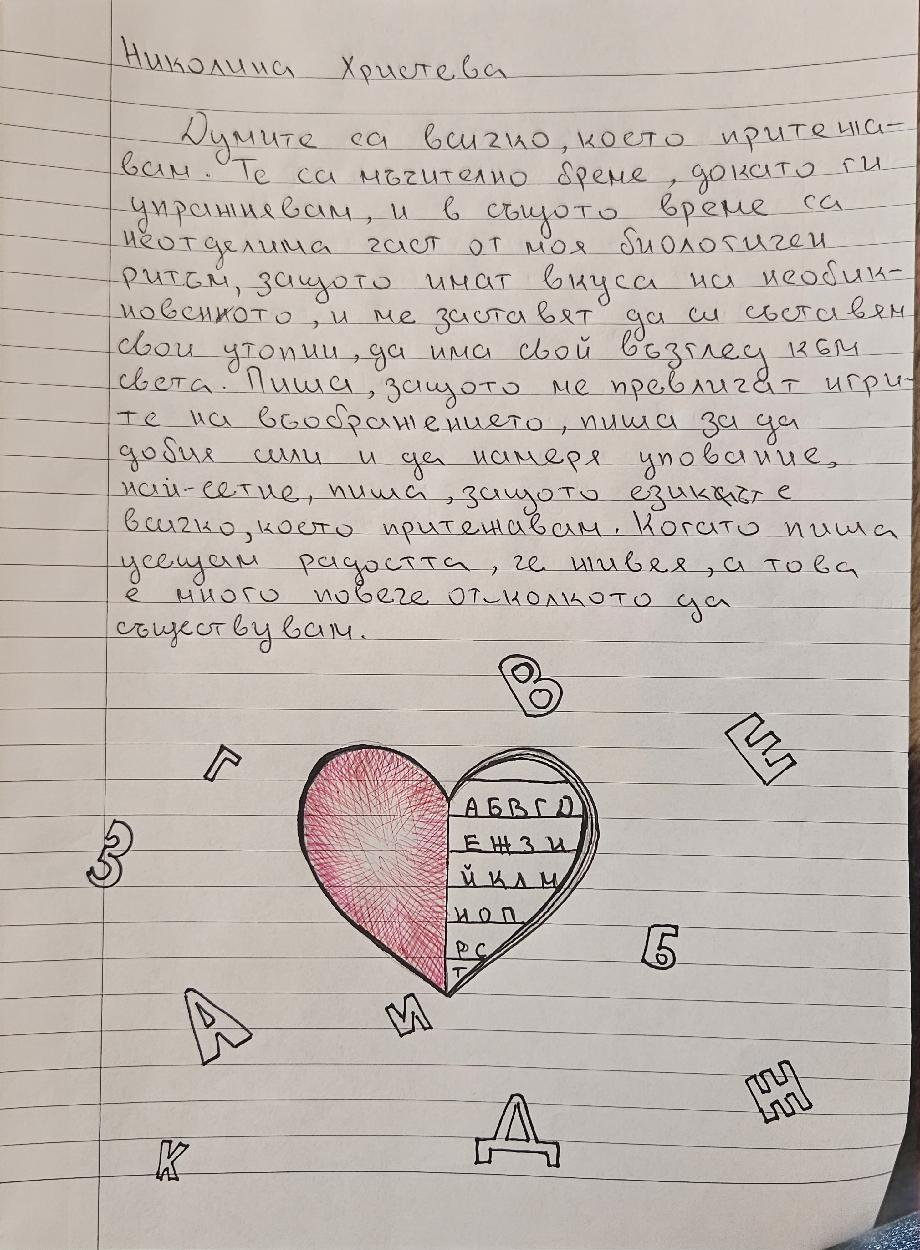 Николина Христева
Думите са всичко, което притежа-
вам. Те са мъчително бреме, докато ги
упражнявам, и в същото време са
неотделима част от моя биологичен
ритъм, защото имат вкуса на необик-
новенното, и ме заставят да си съставям
свои утопии, да има свой възглед към
света. Пиша, защото ме превличат игри-
те на въображението, пиша за да
добия сили и да намеря упование,
най-сетне, пиша, защото езикът е
всичко, което притежавам. Когато пиша
усещам радостта, че живея, а това
е много повече от-колкото да
съществувам.
В
Е
Г
А Б В Г Д
З
Е Ж З И
Й К Л М
Н О П
Р С
Б
Т
А
И
Ж
Д
К